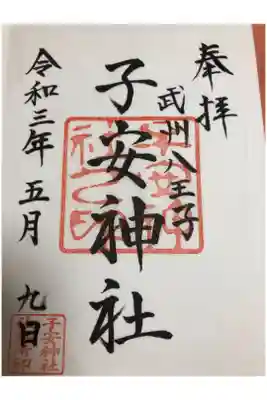 奉拝
武州八王子
子安神社
令和三年五月九日
子安神社